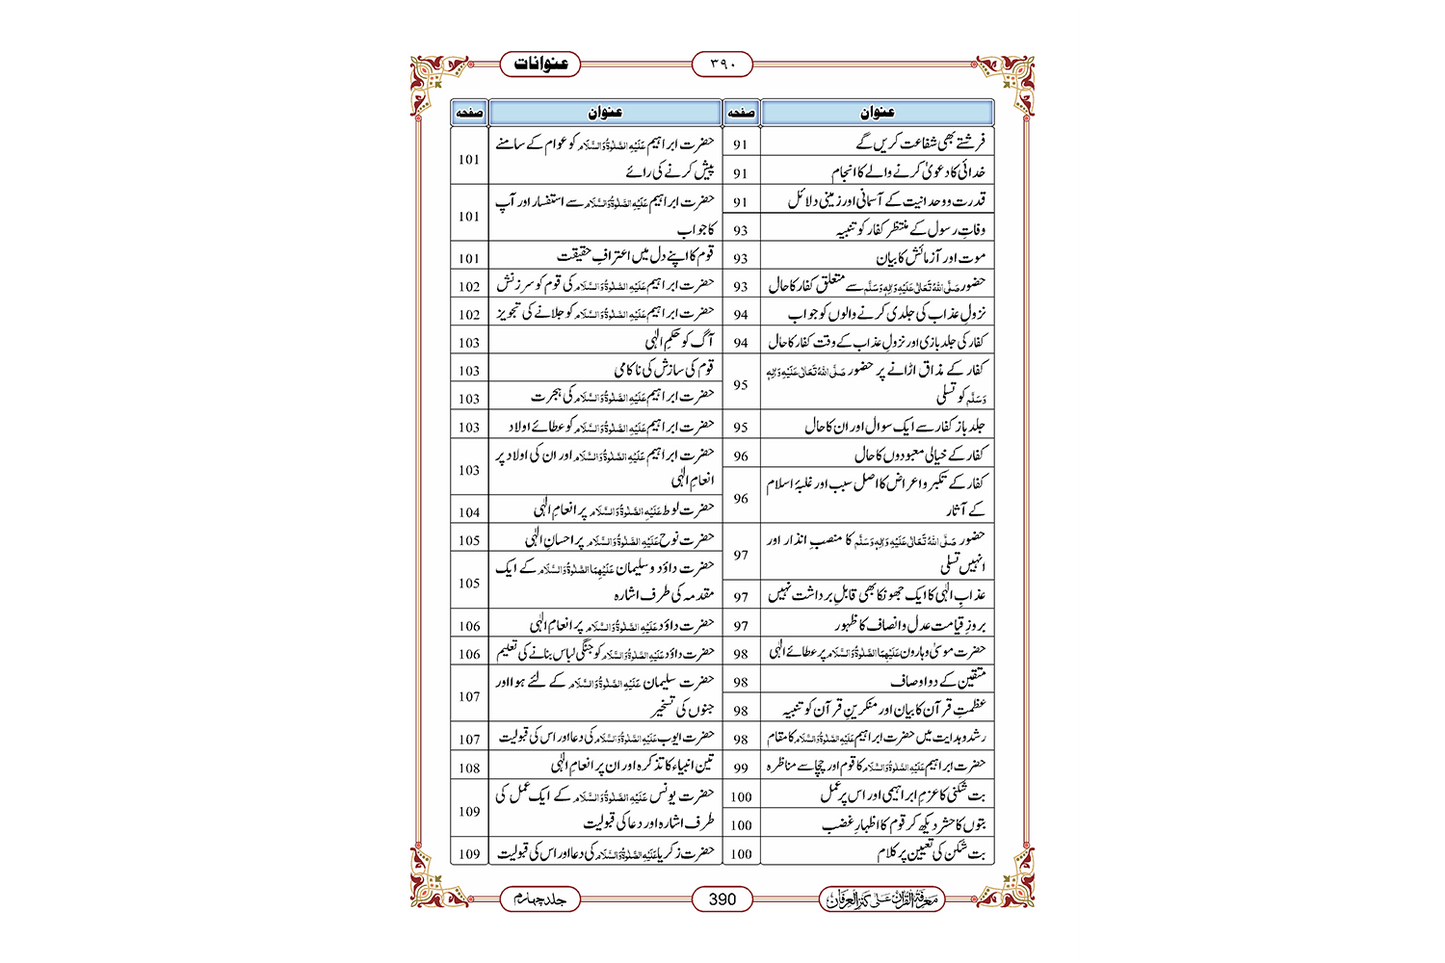 عنوانات
۳۹۰
عنوان صفحہ
فرشتے بھی شفاعت کریں گے 91
خدائی کا دعویٰ کرنے والے کا انجام 91
قدرت و وحدانیت کے آسمانی اور زمینی دلائل 91
وفاتِ رسول کے منتظر کفار کو تنبیہ 93
موت اور آزمائش کا بیان 93
حضور صَلَّی اللہُ تَعَالٰی عَلَیْہِ وَاٰلِہٖ وَسَلَّم سے متعلق کفار کا حال 93
نزولِ عذاب کی جلدی کرنے والوں کو جواب 94
کفار کی جلد بازی اور نزولِ عذاب کے وقت کفار کا حال 94
کفار کے مذاق اڑانے پر حضور صَلَّی اللہُ تَعَالٰی عَلَیْہِ وَاٰلِہٖ
وَسَلَّم کو تسلی 95
جلد باز کفار سے ایک سوال اور ان کا حال 95
کفار کے خیالی معبودوں کا حال 96
کفار کے تکبر و اعراض کا اصل سبب اور غلبۂ اسلام
کے آثار 96
حضور صَلَّی اللہُ تَعَالٰی عَلَیْہِ وَاٰلِہٖ وَسَلَّم کا منصبِ انذار اور
انہیں تسلی 97
عذابِ الٰہی کا ایک جھونکا بھی قابلِ برداشت نہیں 97
بروزِ قیامت عدل و انصاف کا ظہور 97
حضرت موسیٰ و ہارون عَلَیْہِمَا الصَّلٰوۃُ وَالسَّلَام پر عطائے الٰہی 98
متقین کے دو اوصاف 98
عظمتِ قرآن کا بیان اور منکرینِ قرآن کو تنبیہ 98
رشد و ہدایت میں حضرت ابراہیم عَلَیْہِ الصَّلٰوۃُ وَالسَّلَام کا مقام 98
حضرت ابراہیم عَلَیْہِ الصَّلٰوۃُ وَالسَّلَام کا قوم اور چچا سے مناظرہ 99
بت شکنی کا عزمِ ابراہیمی اور اس پر عمل 100
بتوں کا حشر دیکھ کر قوم کا اظہارِ غضب 100
بت شکن کی تعیین پر کلام 100
عنوان صفحہ
حضرت ابراہیم عَلَیْہِ الصَّلٰوۃُ وَالسَّلَام کو عوام کے سامنے
پیش کرنے کی رائے 101
حضرت ابراہیم عَلَیْہِ الصَّلٰوۃُ وَالسَّلَام سے استفسار اور آپ
کا جواب 101
قوم کا اپنے دل میں اعترافِ حقیقت 101
حضرت ابراہیم عَلَیْہِ الصَّلٰوۃُ وَالسَّلَام کی قوم کو سرزنش 102
حضرت ابراہیم عَلَیْہِ الصَّلٰوۃُ وَالسَّلَام کو جلانے کی تجویز 102
آگ کو حکمِ الٰہی 103
قوم کی سازش کی ناکامی 103
حضرت ابراہیم عَلَیْہِ الصَّلٰوۃُ وَالسَّلَام کی ہجرت 103
حضرت ابراہیم عَلَیْہِ الصَّلٰوۃُ وَالسَّلَام کو عطائے اولاد 103
حضرت ابراہیم عَلَیْہِ الصَّلٰوۃُ وَالسَّلَام اور ان کی اولاد پر
انعامِ الٰہی 103
حضرت لوط عَلَیْہِ الصَّلٰوۃُ وَالسَّلَام پر انعامِ الٰہی 104
حضرت نوح عَلَیْہِ الصَّلٰوۃُ وَالسَّلَام پر احسانِ الٰہی 105
حضرت داؤد و سلیمان عَلَیْہِمَا الصَّلٰوۃُ وَالسَّلَام کے ایک
مقدمہ کی طرف اشارہ 105
حضرت داؤد عَلَیْہِ الصَّلٰوۃُ وَالسَّلَام پر انعامِ الٰہی 106
حضرت داؤد عَلَیْہِ الصَّلٰوۃُ وَالسَّلَام کو جنگی لباس بنانے کی تعلیم 106
حضرت سلیمان عَلَیْہِ الصَّلٰوۃُ وَالسَّلَام کے لئے ہوا اور
جنوں کی تسخیر 107
حضرت ایوب عَلَیْہِ الصَّلٰوۃُ وَالسَّلَام کی دعا اور اس کی قبولیت 107
تین انبیاء کا تذکرہ اور ان پر انعامِ الٰہی 108
حضرت یونس عَلَیْہِ الصَّلٰوۃُ وَالسَّلَام کے ایک عمل کی
طرف اشارہ اور دعا کی قبولیت 109
حضرت زکریا عَلَیْہِ الصَّلٰوۃُ وَالسَّلَام کی دعا اور اس کی قبولیت 109
معرفۃ القرآن علی کنز العرفان
390
جلد چہارم